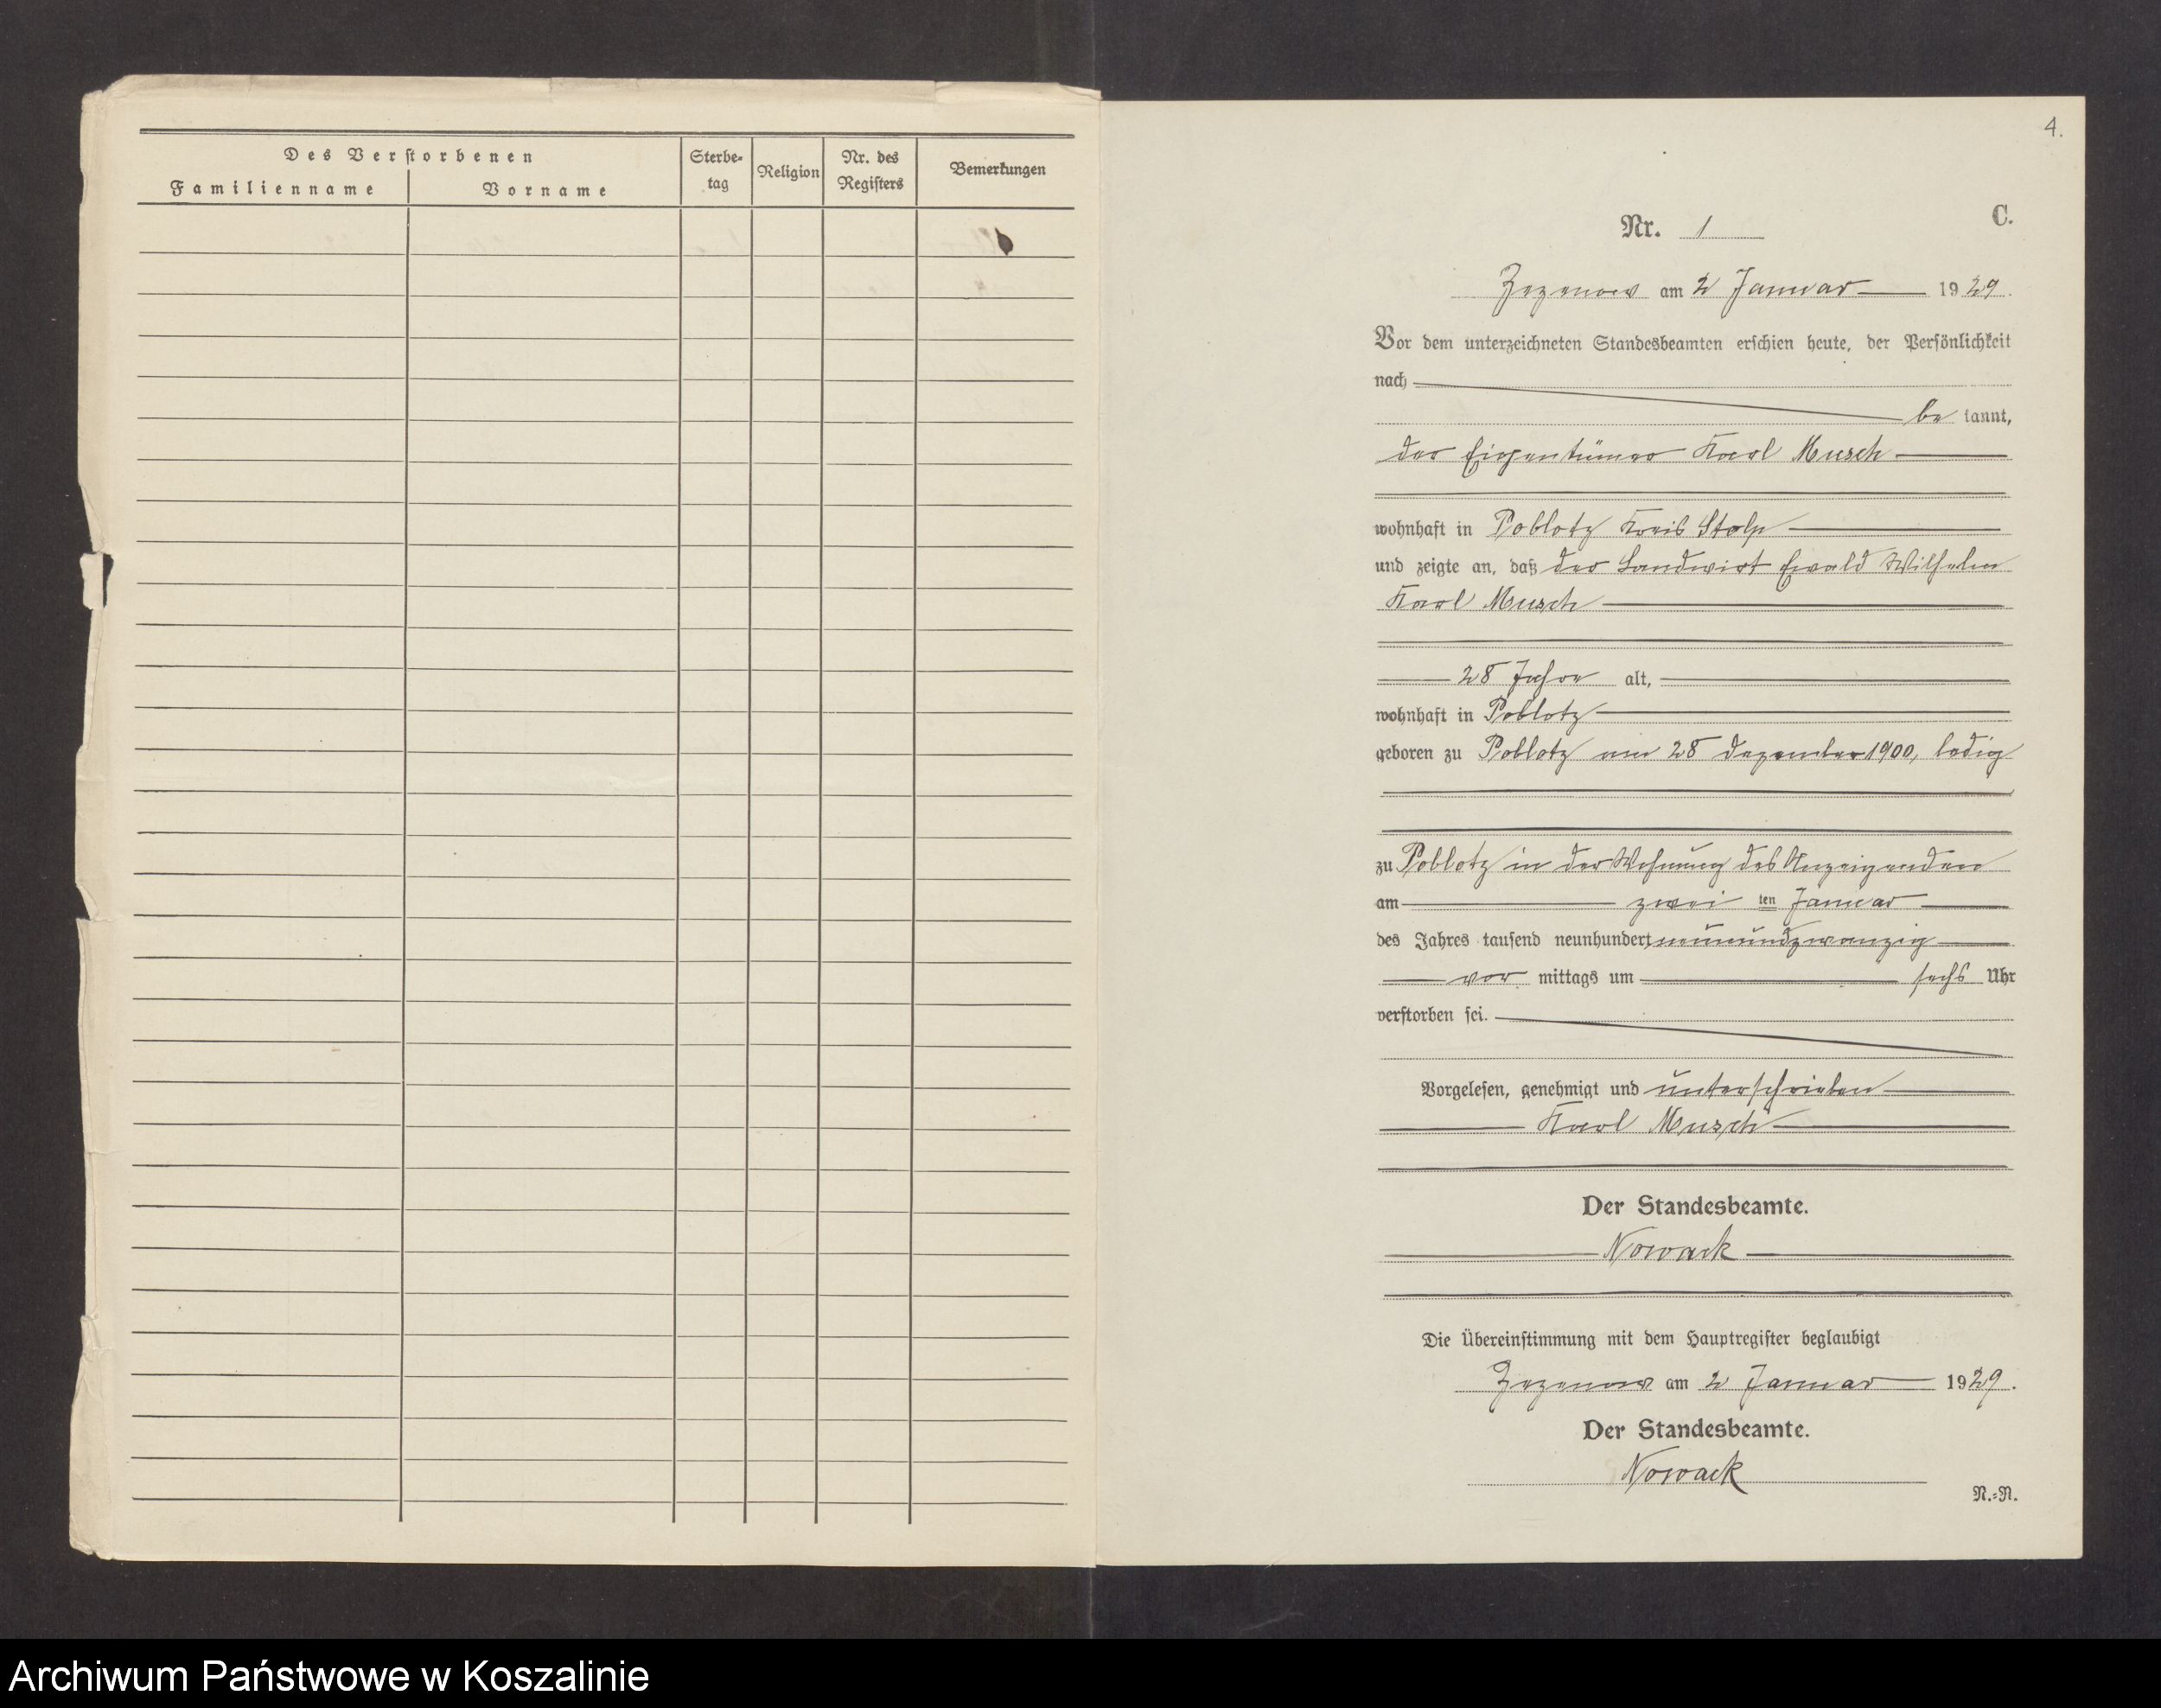 Des Verstorbenen
Familienname
Vorname
Sterbe-
tag
Religion
Nr. des
Registers
Bemerkungen
4.
C.
Nr. 1
Zezenow am 2 Januar 1929.
Vor dem unterzeichneten Standesbeamten erschien heute, der Persönlichkeit
nach
be kannt,
der Eigentümer Karl Musch
wohnhaft in Poblotz Kreis Stolp
und zeigte an, daß der Landwirt Ewald Wilhelm
Karl Musch
28 Jahre alt,
wohnhaft in Poblotz
geboren zu Poblotz am 28 Dezember 1900, ledig
zu Poblotz in der Wohnung des Anzeigenden
am zwei ten Januar
des Jahres tausend neunhundert neunundzwanzig
vor mittags um sechs Uhr
verstorben sei.
Vorgelesen, genehmigt und unterschrieben
Karl Musch
Der Standesbeamte.
Nowack
Die Übereinstimmung mit dem Hauptregister beglaubigt
Zezenow am 2 Januar 1929.
Der Standesbeamte.
Nowack
N.-N.
Archiwum Państwowe w Koszalinie